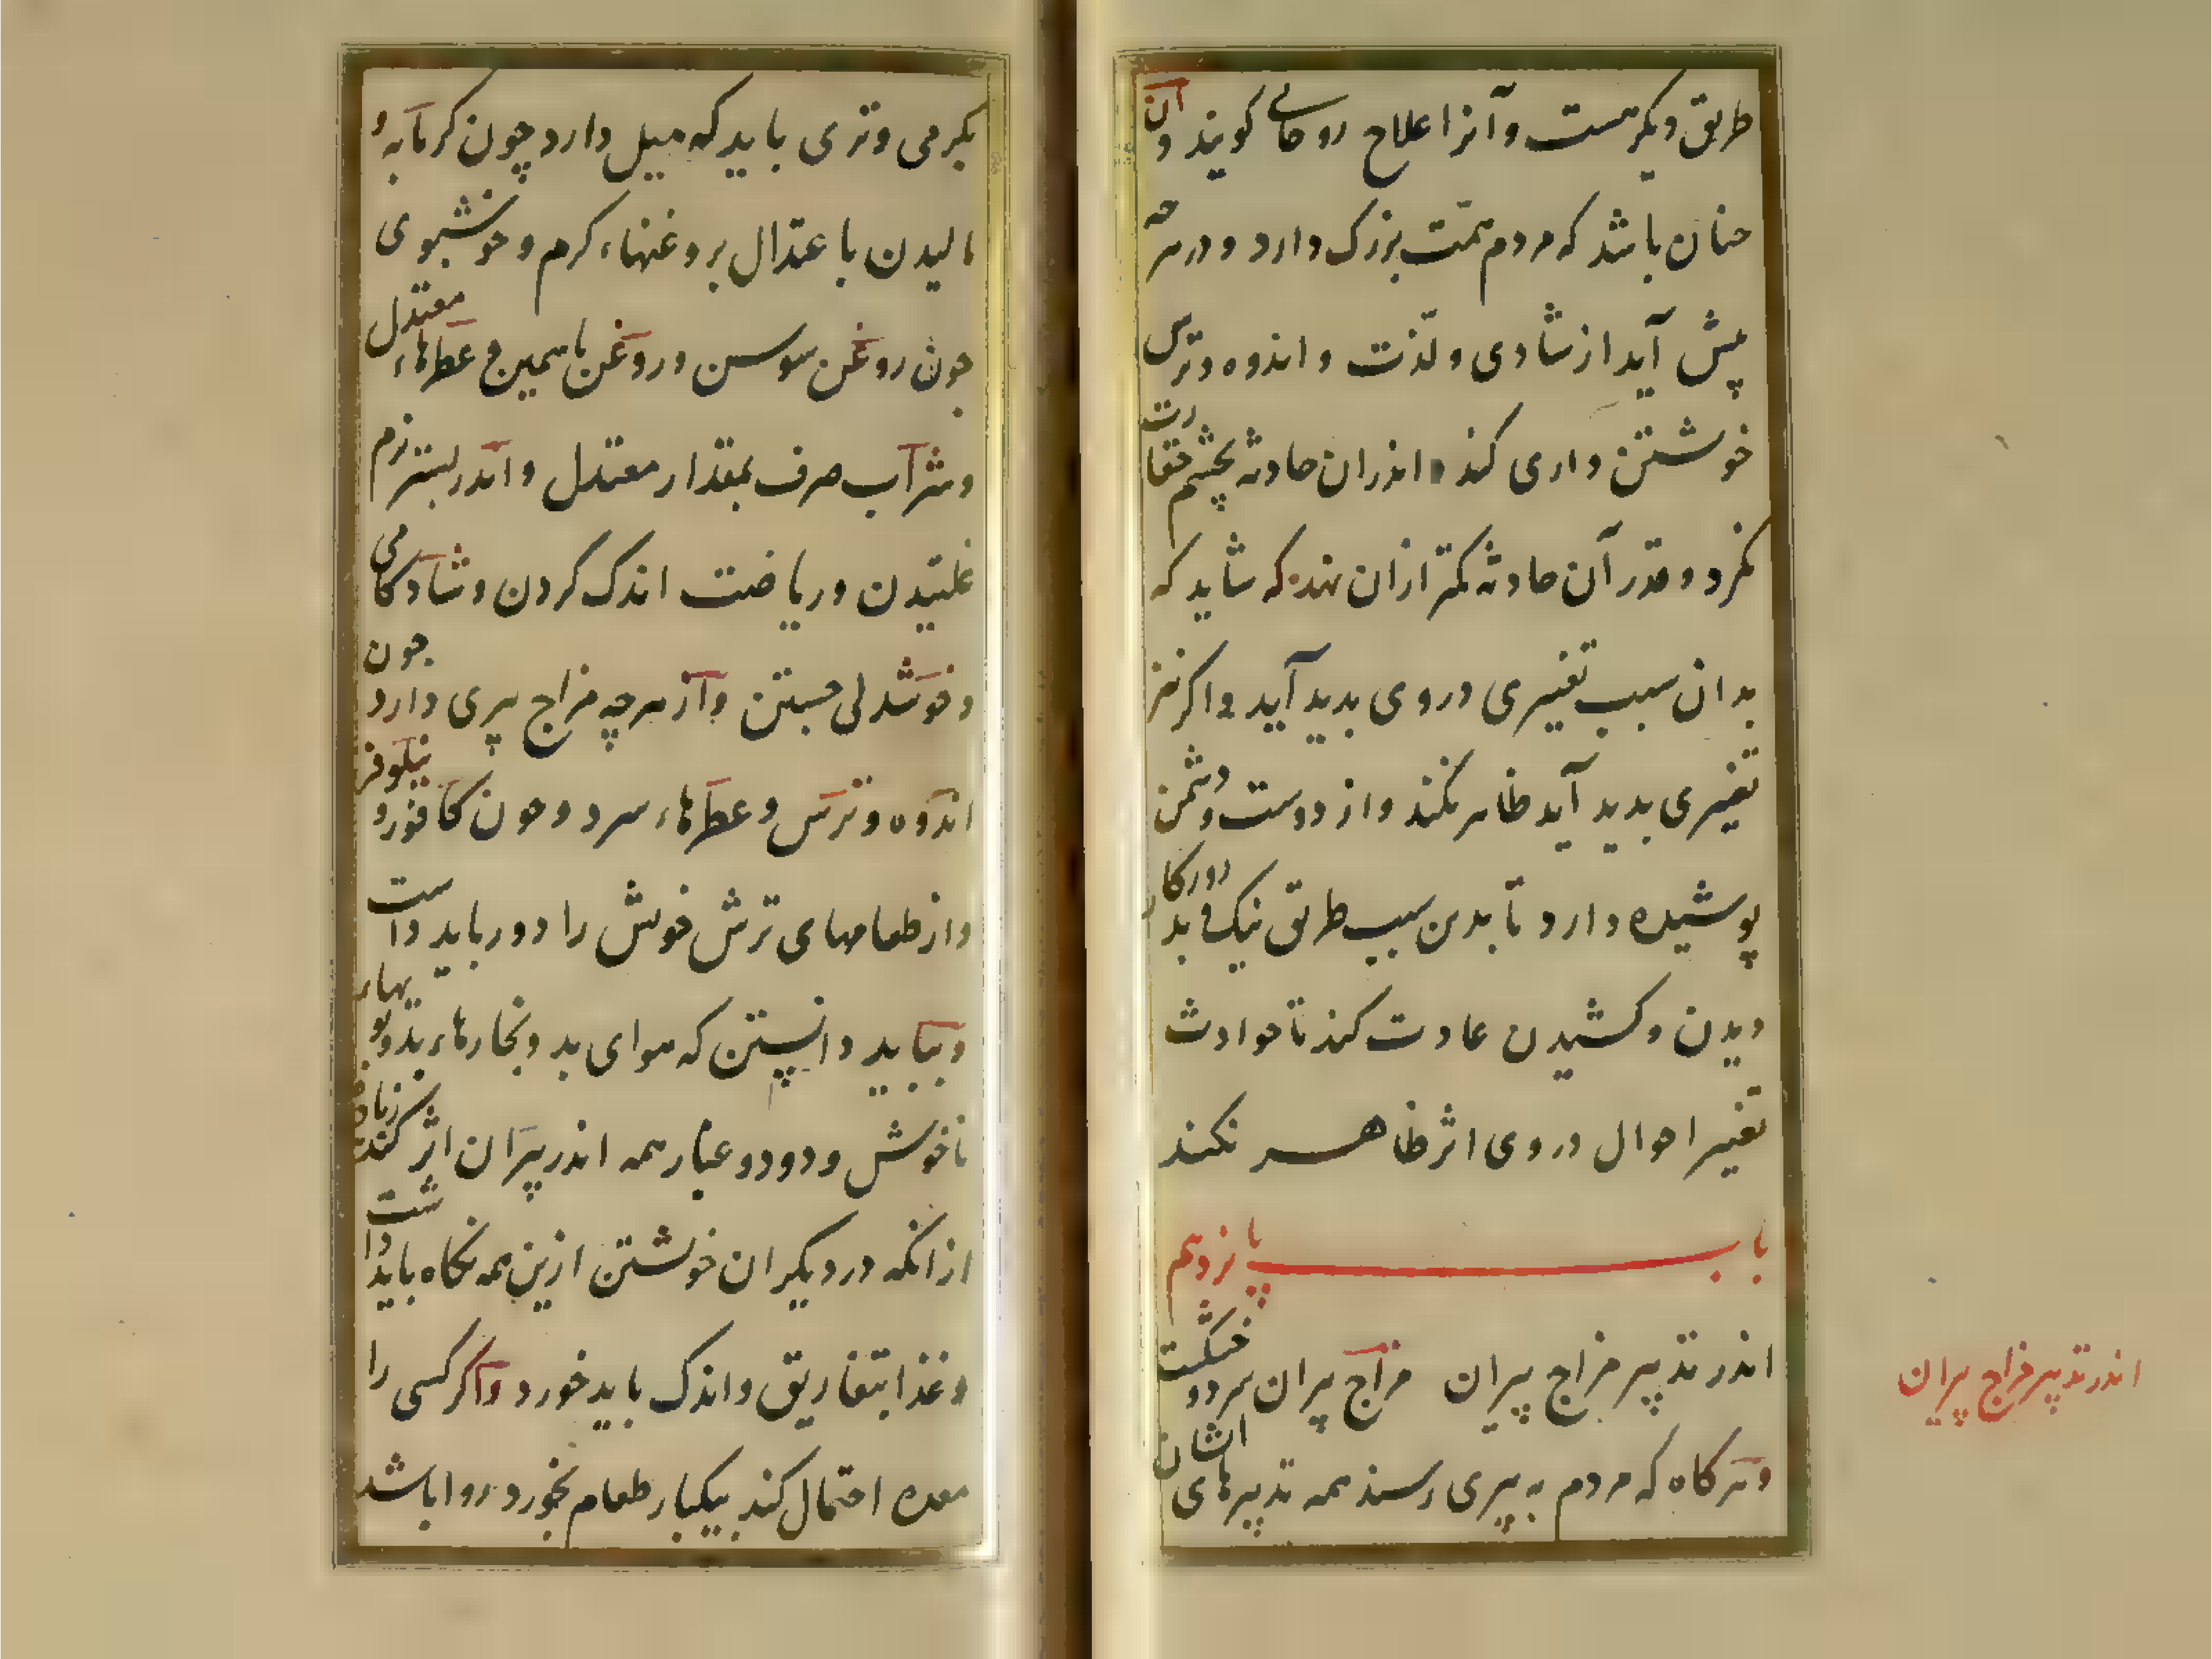 طریق دیکر هست و آنرا علاج روحانی کویند و آن
چنان باشد که مردم همّت بزرک دارد و در هرچه
پیش آید از شادی و لذّت و اندوه و ترس
خوشتن داری کند و اندران حادثه بچشم حقارت
نکرد و قدر آن حادثه کمتر ازان نهد که شاید که
بدان سبب تغییری در وی بدید آید و اکر نیز
تغییری بدید آید ظاهر نکند و از دوست و دشمن
پوشیده دارد تا بدین سبب طریق نیک و بد روزکار
دیدن و کشیدن عادت کند تا حوادث
تغییر احوال در وی اثر ظاهر نکند
باب پانزدهم
اندر تدبیر مزاج پیران مزاج پیران سرد و خشکست
و هرکاه که مردم به پیری رسند همه تدبیرهای ایشان
اندر تدبیر مزاج پیران
بکرمی و تری باید که میل دارد چون کرمابه و
مالیدن باعتدال بروغنهاء کرم و خوشبوی
چون روغن سوسن و روغن یاسمین و عطرهاء معتدل
و شراب صرف بمقدار معتدل و اندر بستر نرم
غلتیدن و ریاضت اندک کردن و شادکامی
و خوشدلی جستن و از هرچه مزاج پیری دارد چون
اندوه و ترس و عطرهاء سرد و چون کافور و نیلوفر
و از طعامهای ترش خویش را دور باید داشت
و بباید دانستن که هوای بد و بخارهاء بد و بویهاء
ناخوش و دود و غبار همه اندر پیران اثر زیادة کند
ازانکه در دیکران خوشتن ازین همه نکاه باید داشت
و غذا بتفاریق و اندک باید خورد و اکر کسی را
معده احتمال کند بیکبار طعام بخورد روا باشد